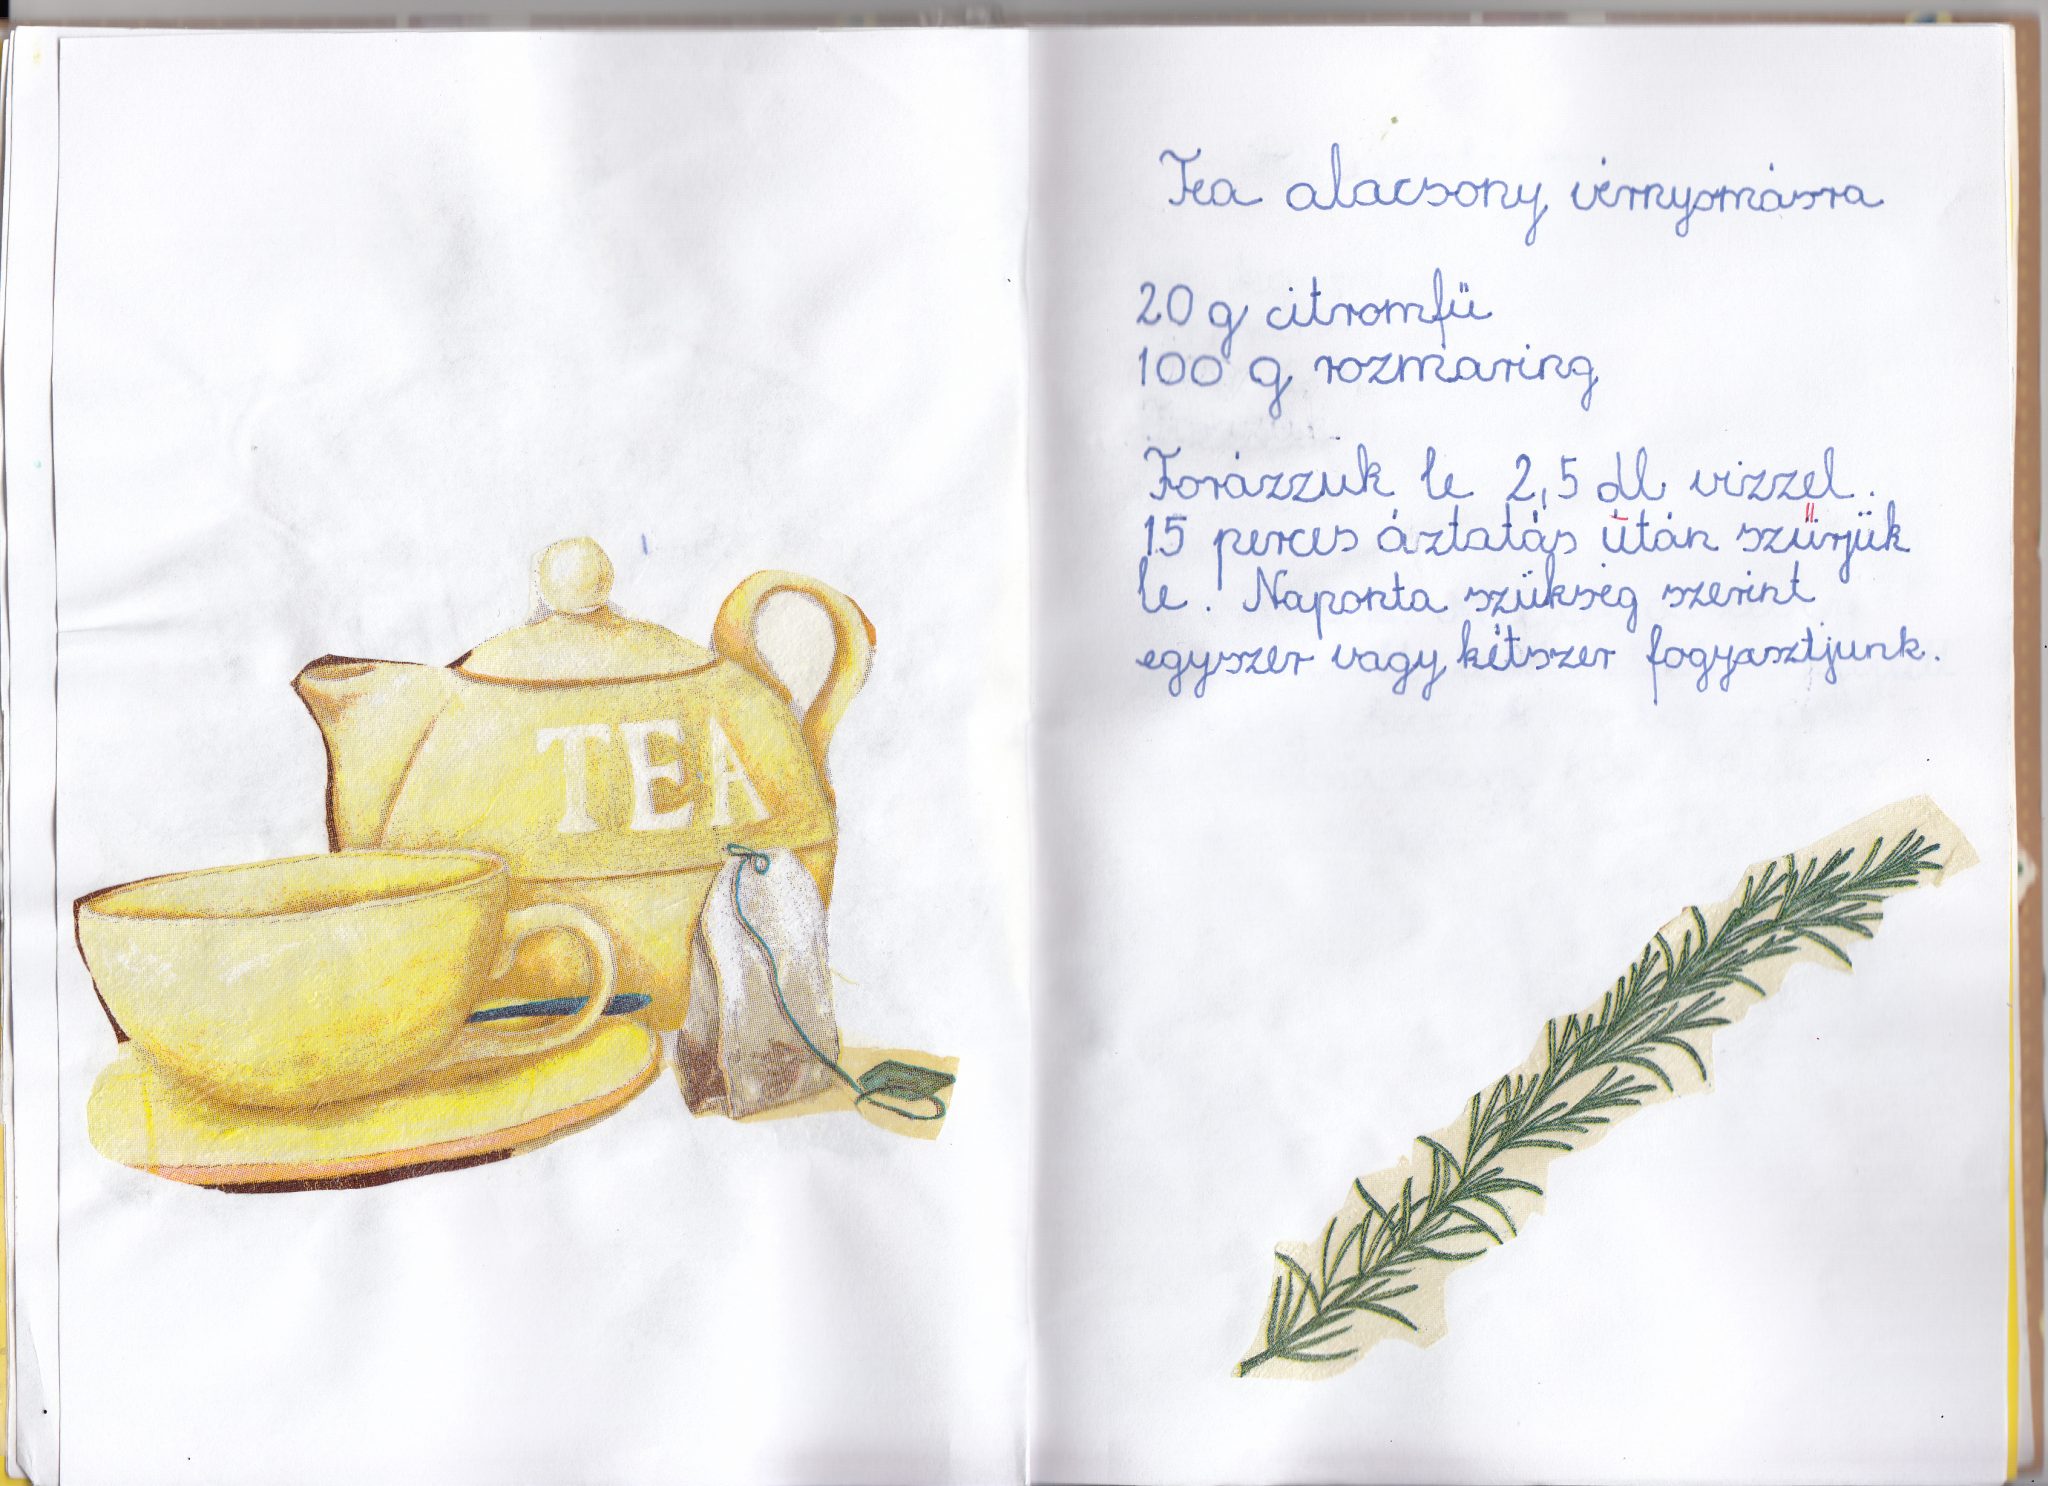 TEA
Tea alacsony vérnyomásra
20 g citromfü
100 g rozmaring
Forázzuk le 2,5 dl vizzel.
15 perces áztatás után szűrjük
le. Naponta szükség szerint
egyszer vagy kétszer fogyasztjunk.